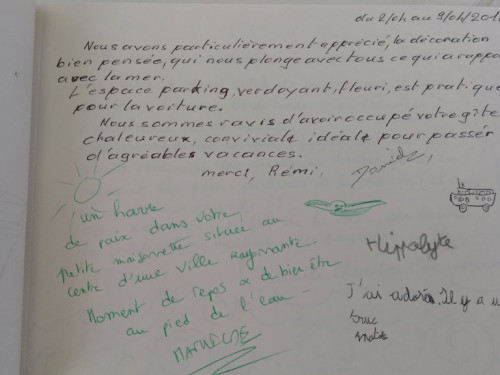 du 2/04 au 9/04/201
Nous avons particulièrement apprécié, la décoration
bien pensée, qui nous plonge avec tous ce qui a rappo
avec la mer.
L'espace parking, verdoyant, fleuri, est pratique
pour la voiture.
Nous sommes ravis d'avoir occupé votre gîte
chaleureux, convivial & idéal & pour passer
d'agréables vacances.
merci, Rémi,
un havre
de paix dans votre
petite maisonnette située au
centre d'une ville Rayonnante
Moment de repos & de bien être
au pied de l'eau
Hippolyte
J'ai adorer. Il y a u
truc